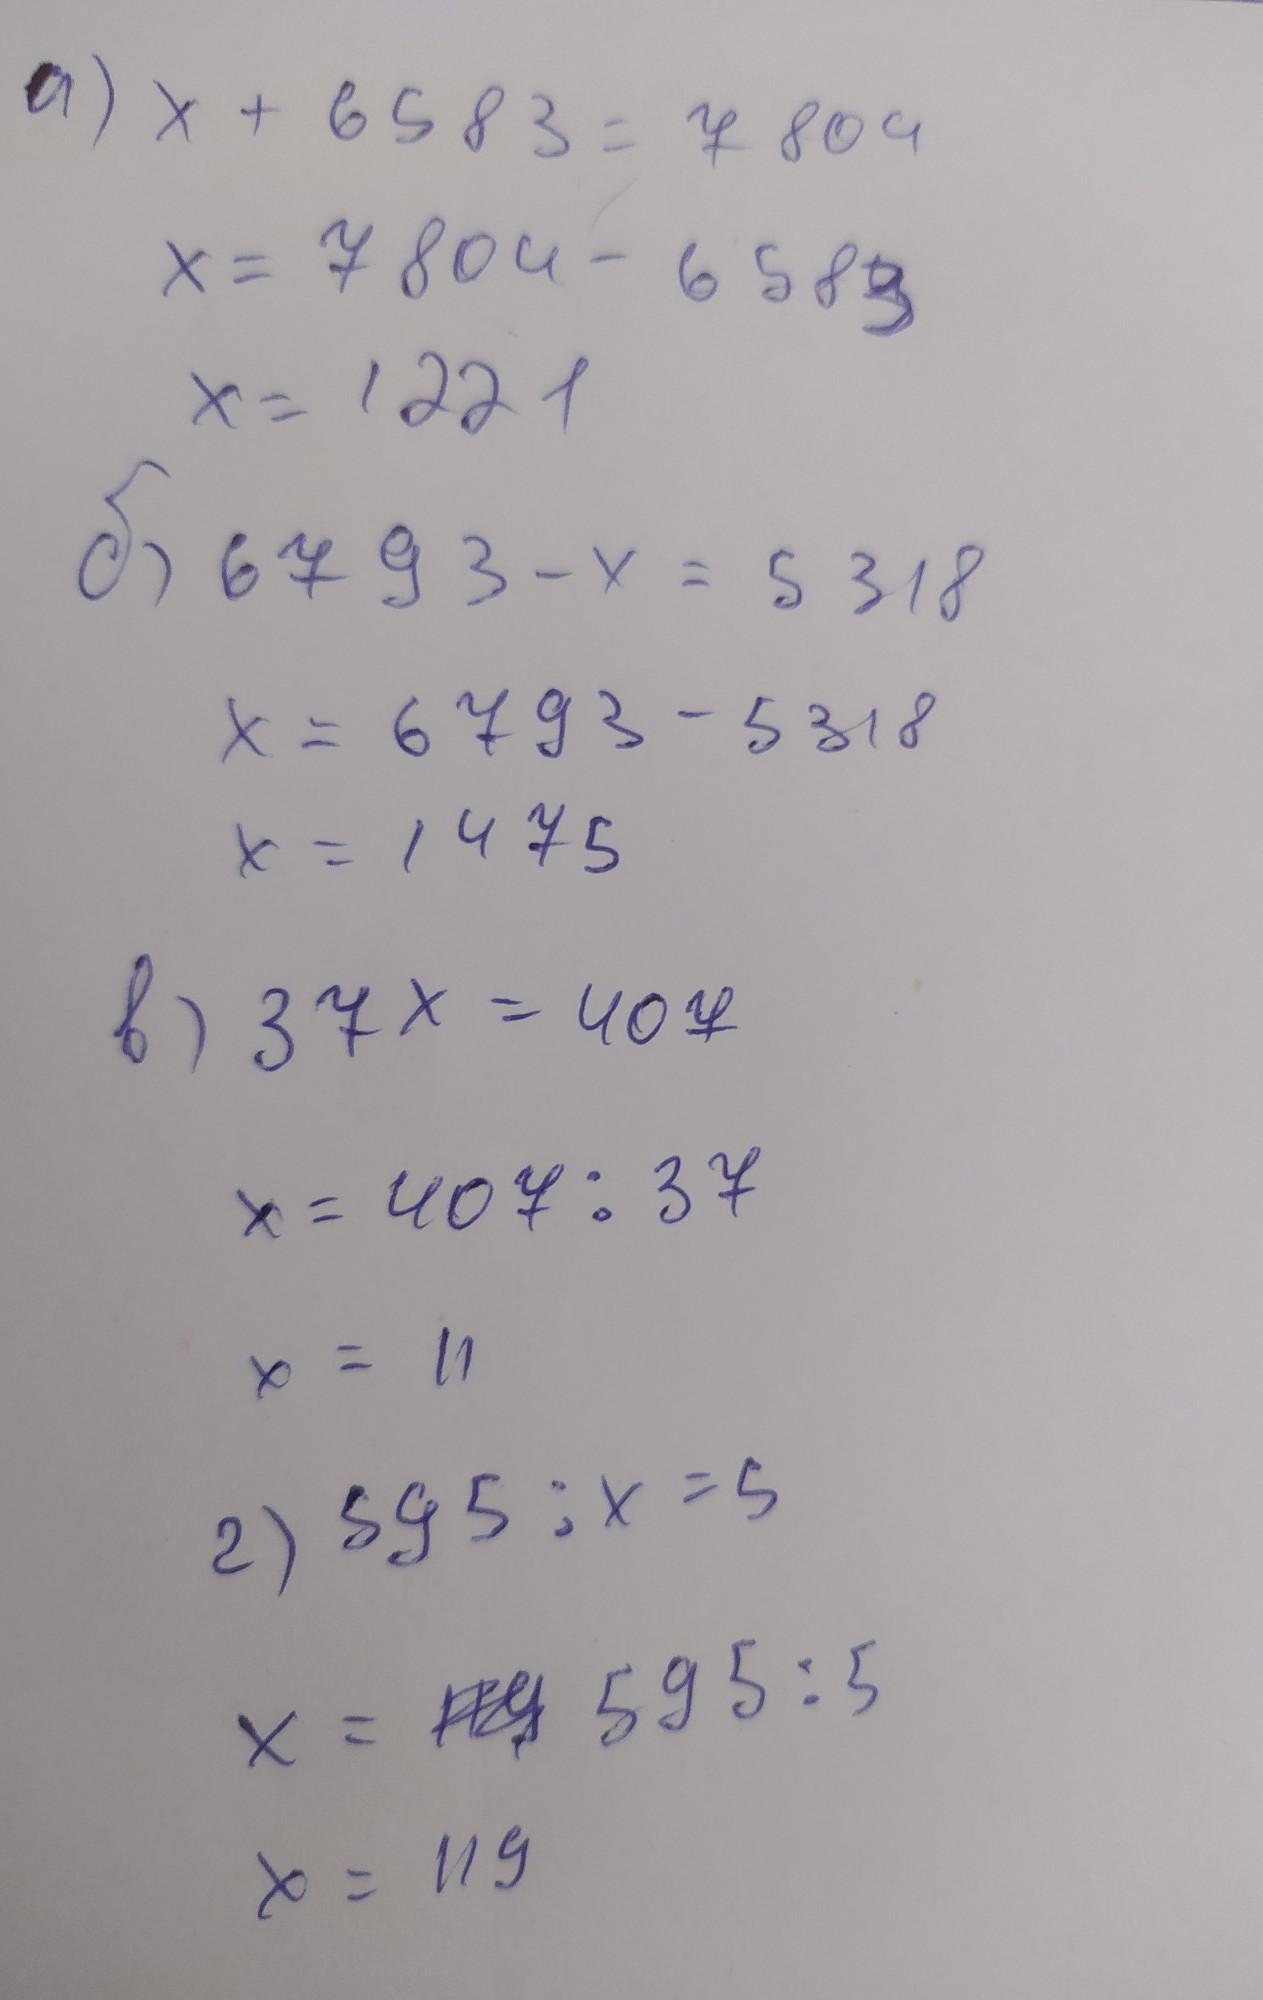 а) x + 6583 = 7804
x = 7804 - 6583
x = 1221
б) 6793 - x = 5318
x = 6793 - 5318
x = 1475
в) 37x = 407
x = 407 : 37
x = 11
г) 595 : x = 5
x = 595 : 5
x = 119